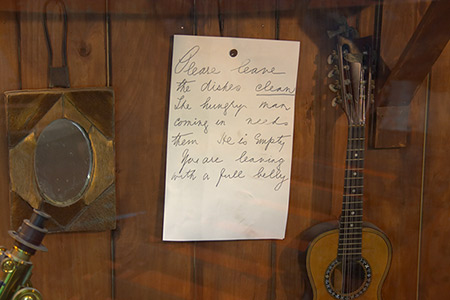 Please leave
the dishes clean
The hungry man
coming in needs
them He is Empty
You are leaving
with a full belly